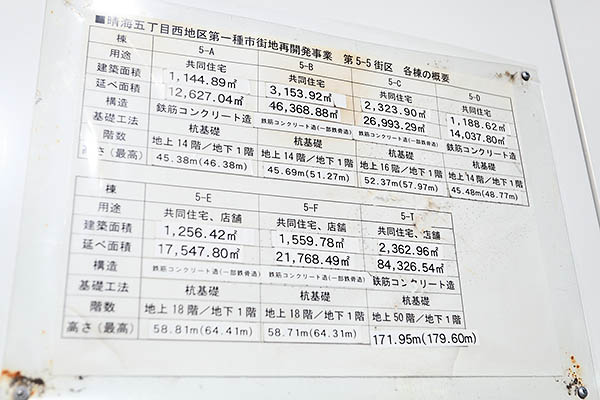 ■晴海五丁目西地区第一種市街地再開発事業 第5-5街区 各棟の概要
棟 5-A 5-B 5-C 5-D
用途 共同住宅 共同住宅 共同住宅 共同住宅
建築面積 1,144.89㎡ 3,153.92㎡ 2,323.90㎡ 1,188.62㎡
延べ面積 12,627.04㎡ 46,368.88㎡ 26,993.29㎡ 14,037.80㎡
構造 鉄筋コンクリート造 鉄筋コンクリート造(一部鉄骨造) 鉄筋コンクリート造(一部鉄骨造) 鉄筋コンクリート造
基礎工法 杭基礎 杭基礎 杭基礎 杭基礎
階数 地上14階/地下1階 地上14階/地下1階 地上16階/地下1階 地上14階/地下1階
高さ(最高) 45.38m(46.38m) 45.69m(51.27m) 52.37m(57.97m) 45.48m(48.77m)
棟 5-E 5-F 5-T
用途 共同住宅、店舗 共同住宅、店舗 共同住宅、店舗
建築面積 1,256.42㎡ 1,559.78㎡ 2,362.96㎡
延べ面積 17,547.80㎡ 21,768.49㎡ 84,326.54㎡
構造 鉄筋コンクリート造(一部鉄骨造) 鉄筋コンクリート造(一部鉄骨造) 鉄筋コンクリート造
基礎工法 杭基礎 杭基礎 杭基礎
階数 地上18階/地下1階 地上18階/地下1階 地上50階/地下1階
高さ(最高) 58.81m(64.41m) 58.71m(64.31m) 171.95m(179.60m)